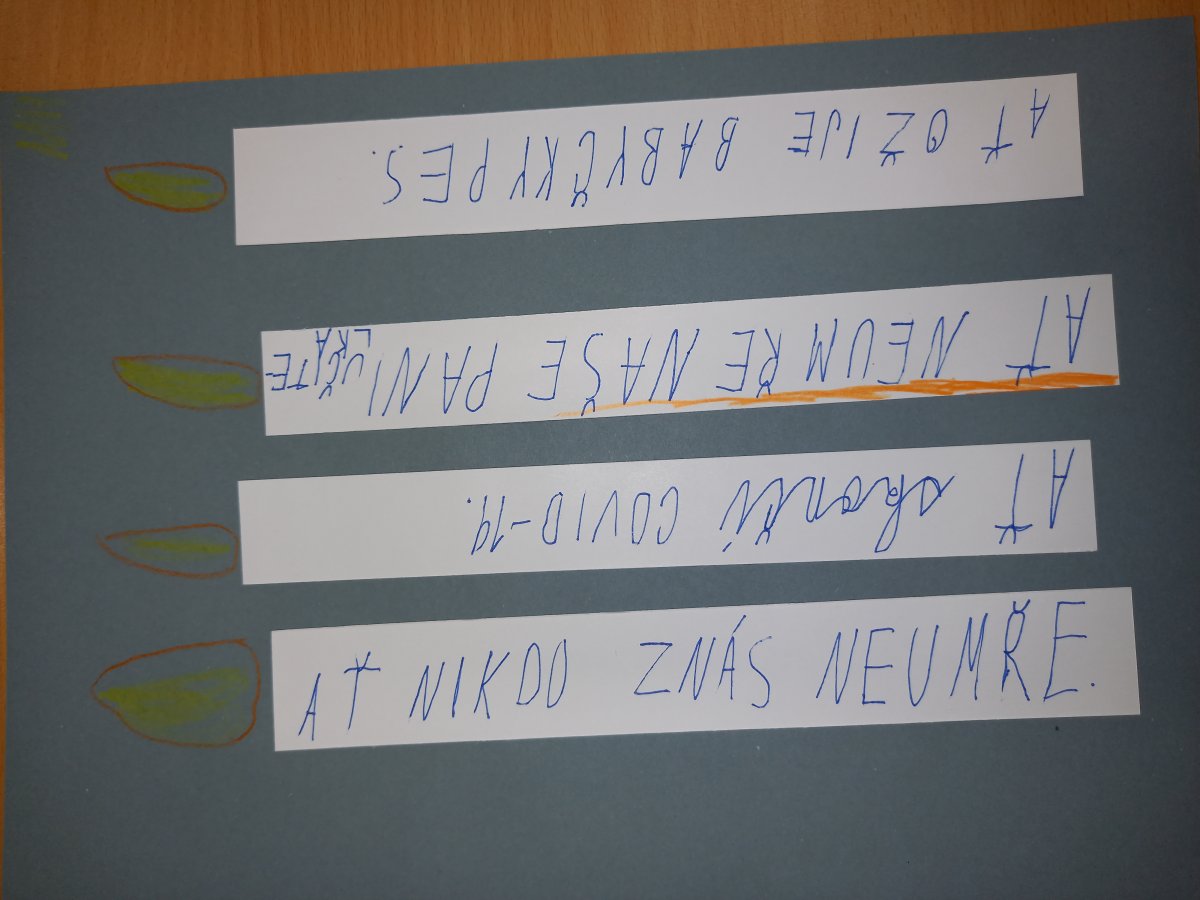 AŤ OŽIJE BABYČKY PES.
AŤ NEUMŘE NAŠE PANI UČITE-
LKA
AŤ skončí COVID-19.
AŤ NIKDO ZNÁS NEUMŘE.